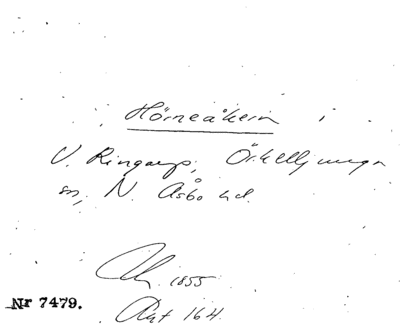 Hörneåkern i
V. Ringarp, Örkelljunga
sn, N. Åsbo hd.
1855
Akt 164.
Nr 7479.